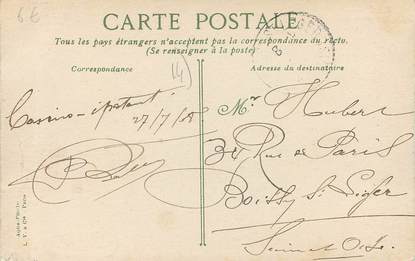 6€
CARTE POSTALE
Tous les pays étrangers n'acceptent pas la correspondance au recto.
(Se renseigner à la poste)
Correspondance
14
Adresse du destinataire
27/7/
Mr Hubert
34 Rue de Paris
Boissy St Léger
Seine et Oise
L. V. & Cie Paris